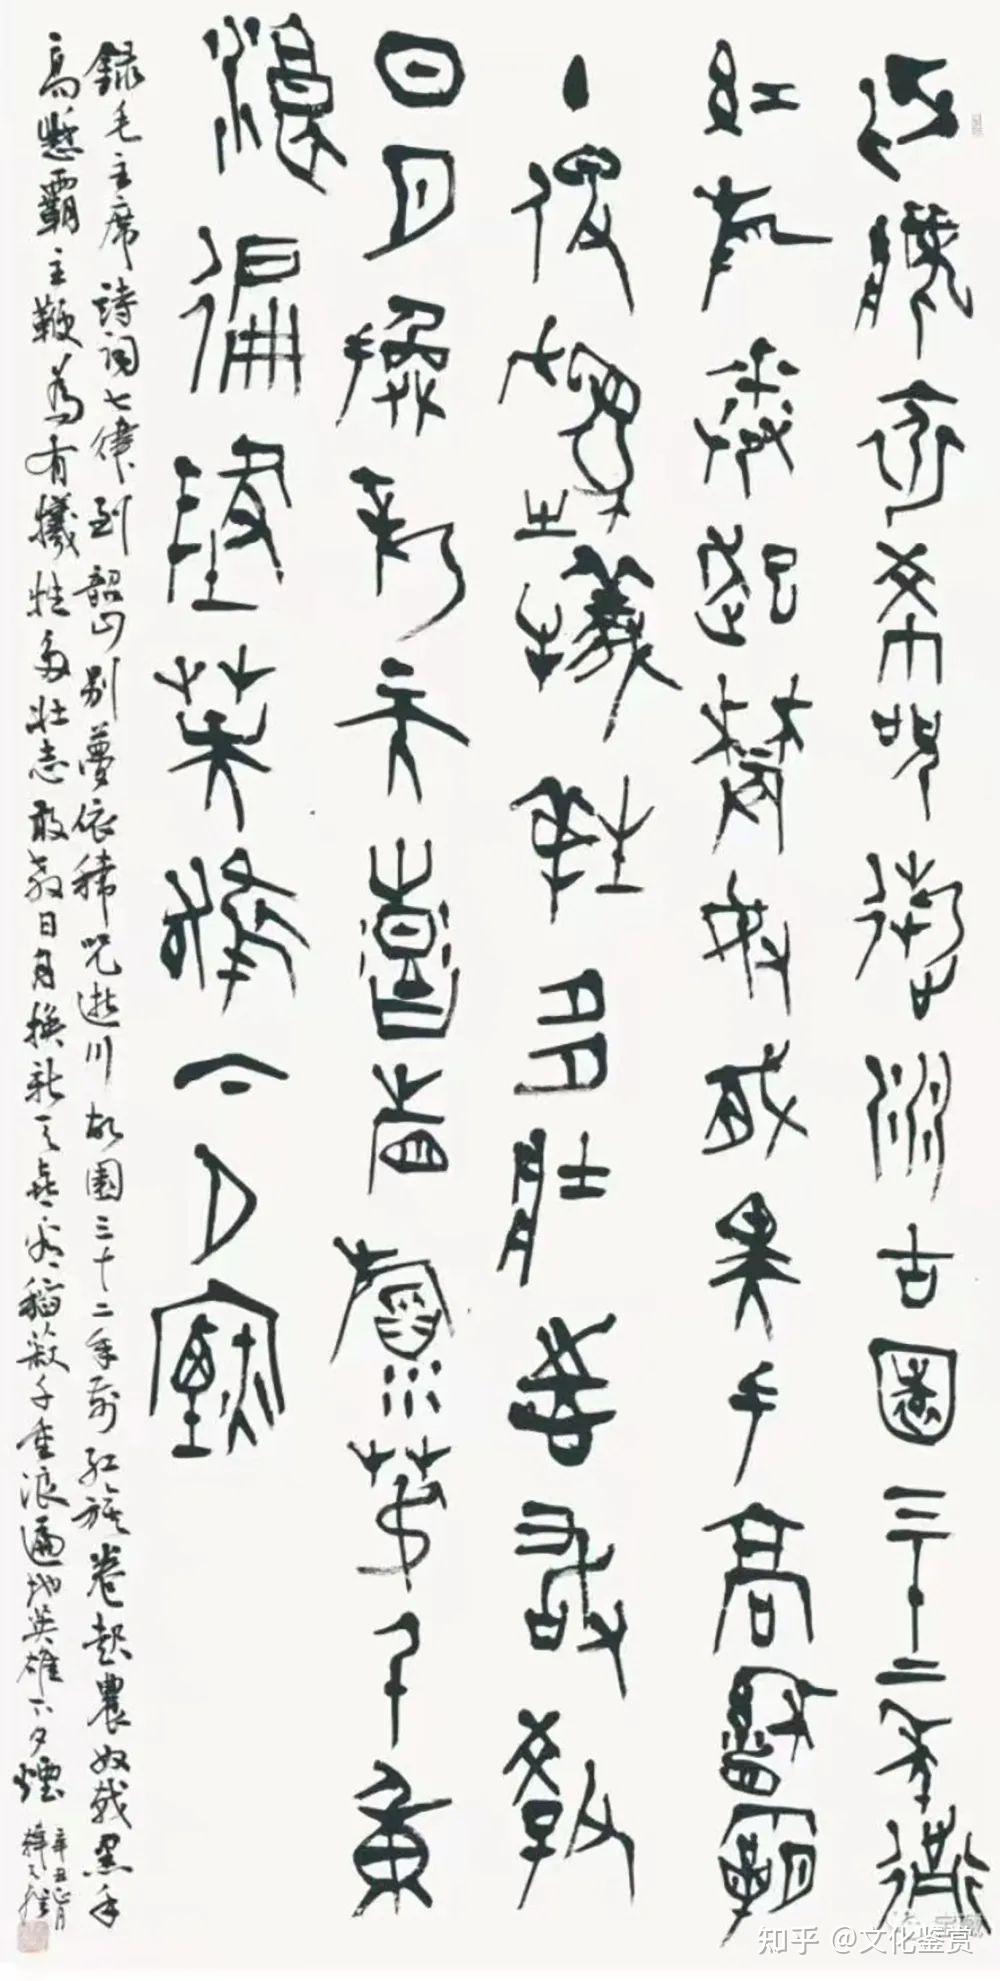 别夢依希咒逝川古園三十二年前
紅旂卷起農奴戟黑手高縣霸
主鞭為有犧牲多壯志敢教
日月換新天喜看稻菽千重
浪徧地英雄下夕煙
錄毛主席詩詞七律到韶山别夢依稀咒逝川故園三十二年前紅旗卷起農奴戟黑手
高懸霸主鞭為有犧牲多壯志敢教日月換新天喜看稻菽千重浪遍地英雄下夕煙
辛丑正月
韓天雍
知乎 @文化鉴赏